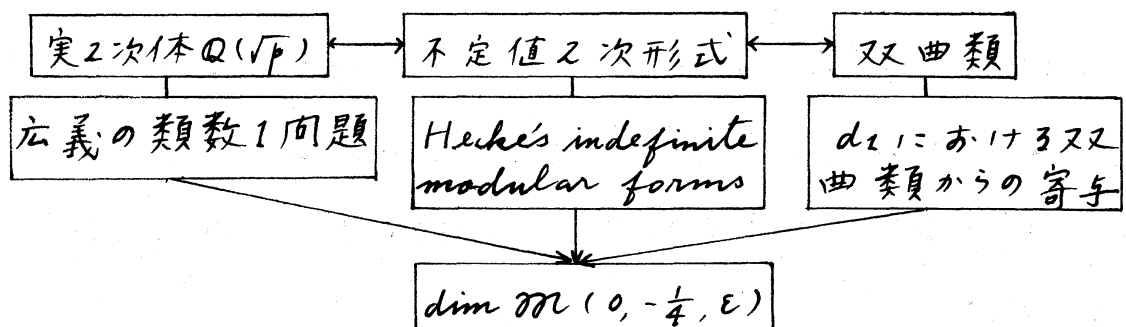 実2次体Q(√p)
不定値2次形式
双曲類
広義の類数1問題
Hecke's indefinite
modular forms
d₁における双
曲類からの寄与
dim 𝔐(0, -1/4, ε)